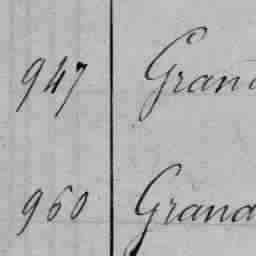 947 Grand
960 Grand